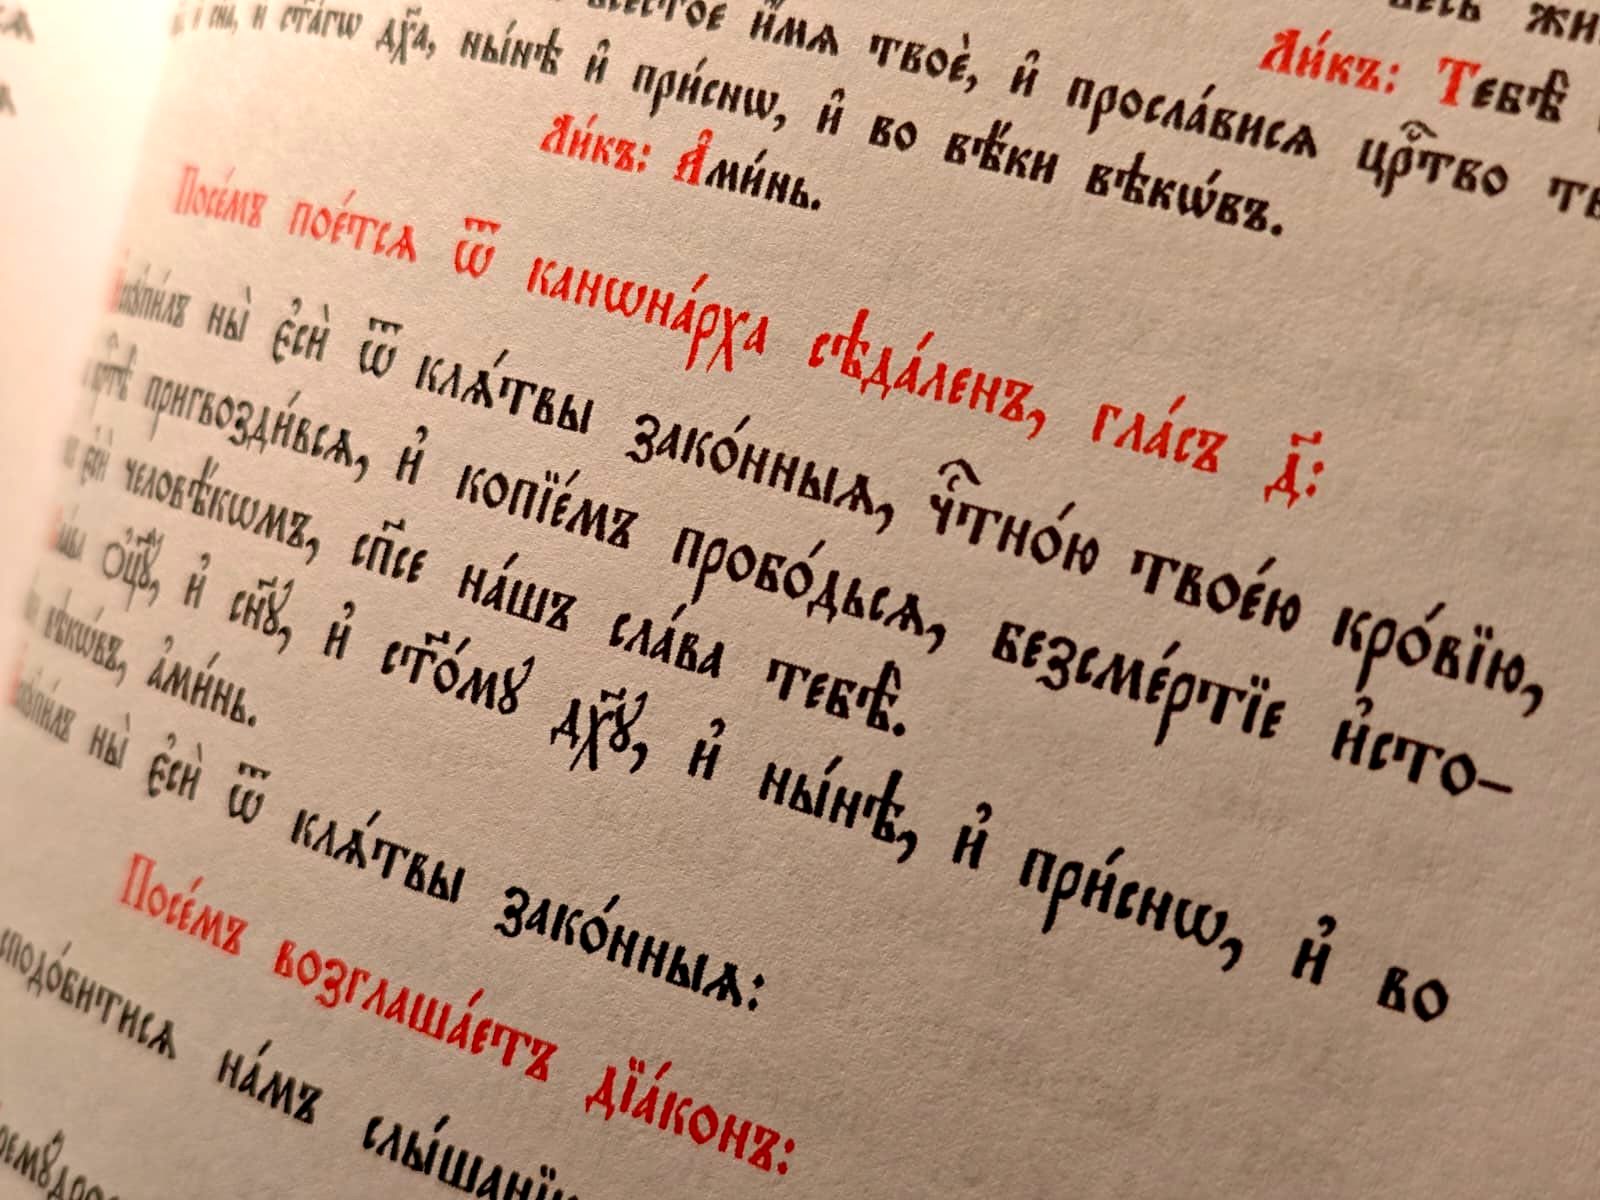 весь жи
Ли́къ: Тебѣ̀
и҆́мѧ твоѐ, и҆ просла́висѧ црⷭ҇тво
и҆ ст҃а́гѡ дх҃а, ны́нѣ и҆ при́снѡ, и҆ во вѣ́ки вѣкѡ́въ.
Ли́къ: А҆ми́нь.
Посе́мъ пое́тсѧ ѿ канѡна́рха сѣда́ленъ, гла́съ д҃:
И҆скꙋпи́лъ ны̀ є҆сѝ ѿ клѧ́твы зако́нныѧ, чⷭ҇тно́ю твое́ю кро́вїю,
крⷭ҇тѣ̀ пригвозди́всѧ, и҆ копїе́мъ пробо́дьсѧ, безсме́ртїе и҆сто-
є҆сѝ человѣ́кѡмъ, сп҃се на́шъ сла́ва тебѣ̀.
ѻ҆ц҃ꙋ̀, и҆ сн҃ꙋ, и҆ ст҃о́мꙋ дх҃ꙋ, и҆ ны́нѣ, и҆ при́снѡ, и҆ во
вѣкѡ́въ, а҆ми́нь.
И҆скꙋпи́лъ ны̀ є҆сѝ ѿ клѧ́твы зако́нныѧ:
Посе́мъ возглаша́етъ дїа́конъ:
сподо́битисѧ на́мъ слы́шанї